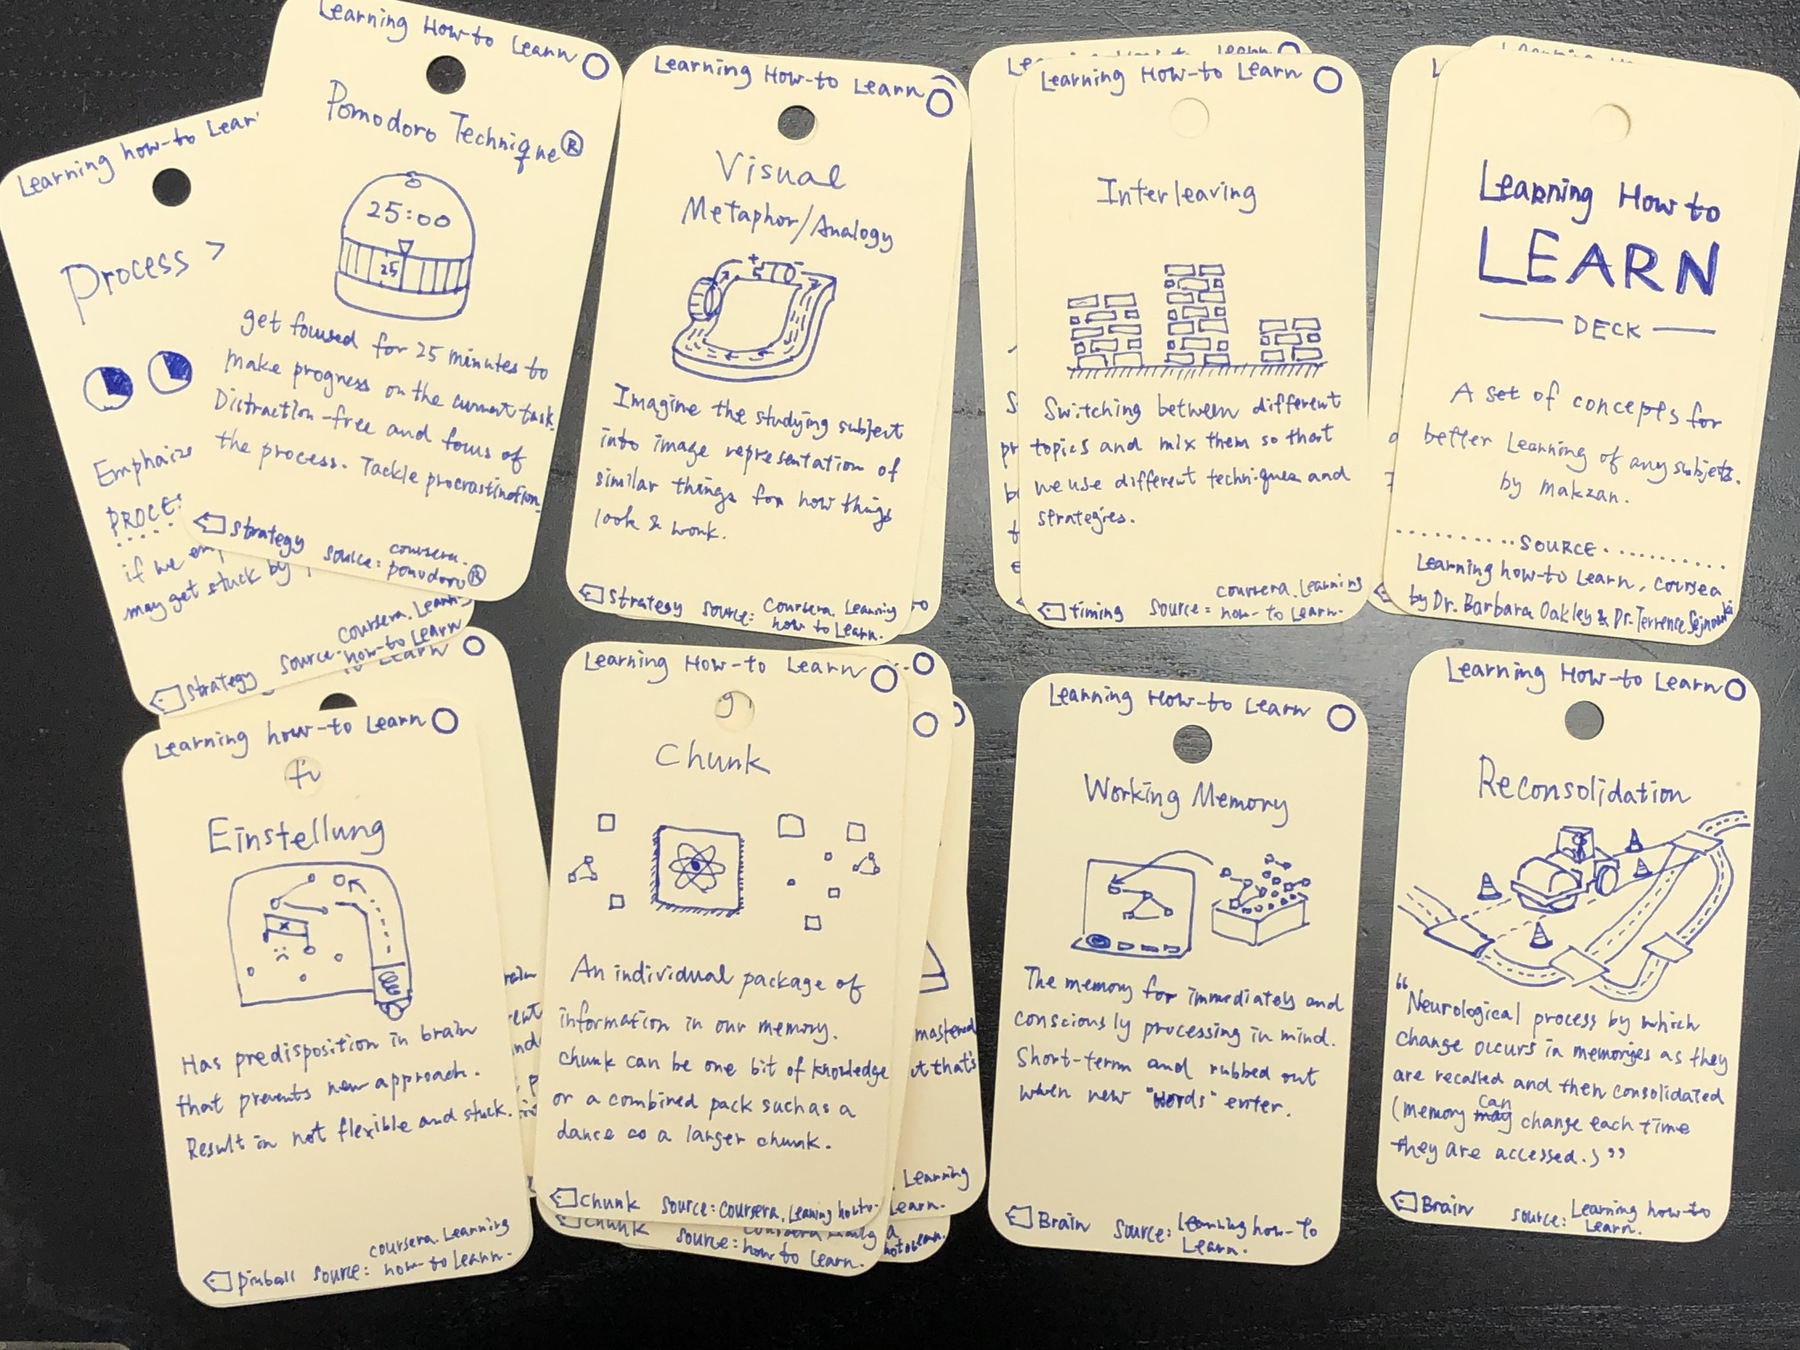 Learning how-to Lear
Process >
Emphasize
PROCE
if we em
may get stuck by
strategy source: coursera. Learning
how-to Learn
Learning How-to Learn
Pomodoro Technique®
25:00
25
get focused for 25 minutes to
make progress on the current task.
Distraction-free and focus of
the process. Tackle procrastination.
strategy source: coursera.
pomodoro®
Learning How-to Learn
Visual
Metaphor/Analogy
+ -
Imagine the studying subject
into image representation of
similar things for how things
look & work.
strategy source: coursera. Learning
how to Learn.
Learning How-to Learn
Interleaving
Switching between different
topics and mix them so that
we use different techniques and
strategies.
timing source: coursera. Learning
how-to Learn.
Learning How to
LEARN
DECK
A set of concepts for
better Learning of any subjects.
by Makzan.
SOURCE
Learning how-to Learn, coursea
by Dr. Barbara Oakley & Dr. Terrence Sejnowski
Learn
Learning how-to Learn
Einstellung
Has predisposition in brain
that prevents new approach.
Result in not flexible and stuck.
pinball source: coursera. Learning
how-to Learn.
Learning How-to Learn
Chunk
An individual package of
information in our memory.
chunk can be one bit of knowledge
or a combined pack such as a
dance as a larger chunk.
chunk source: coursera. Learning how to
chunk source: how to Learn.
mastered
t that's
Learning
Learn.
Learning How-to Learn
Working Memory
The memory for immediately and
consciously processing in mind.
Short-term and rubbed out
when new "words" enter.
Brain source: Learning how-to
Learn.
Learning How-to Learn
Reconsolidation
"Neurological process by which
change occurs in memories as they
are recalled and then consolidated
(memory can may change each time
they are accessed.)"
Brain source: Learning how-to
Learn.